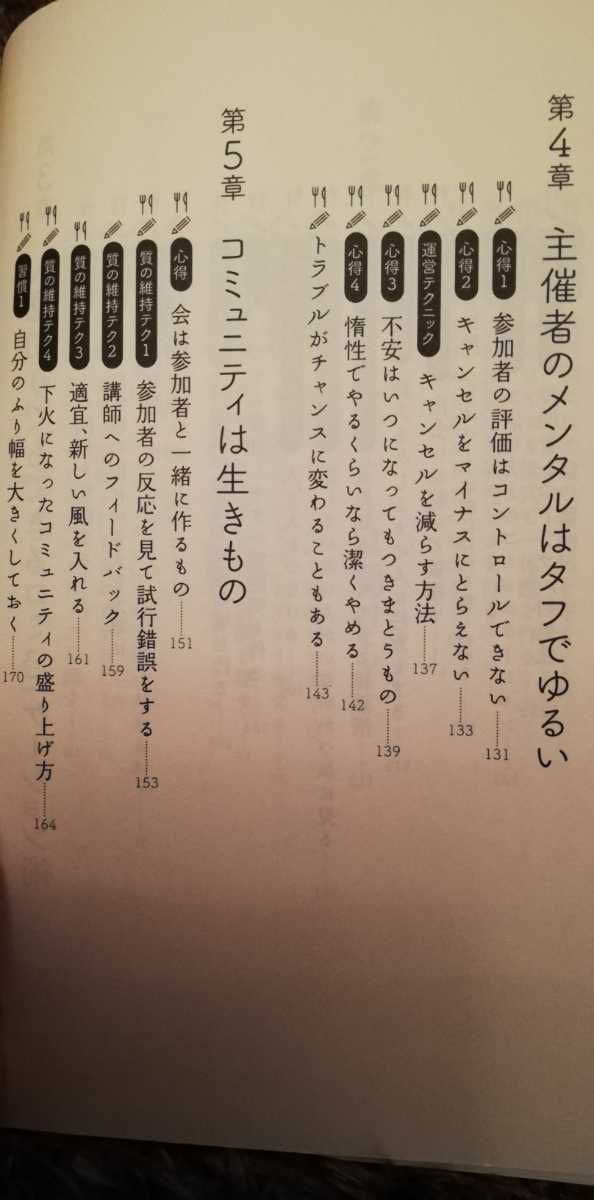 第4章 主催者のメンタルはタフでゆるい
心得1 参加者の評価はコントロールできない……131
心得2 キャンセルをマイナスにとらえない……133
運営テクニック キャンセルを減らす方法……137
心得3 不安はいつになってもつきまとうもの……139
心得4 惰性でやるくらいなら潔くやめる……142
トラブルがチャンスに変わることもある……143
第5章 コミュニティは生きもの
心得 会は参加者と一緒に作るもの……151
質の維持テク1 参加者の反応を見て試行錯誤をする……153
質の維持テク2 講師へのフィードバック……159
質の維持テク3 適宜、新しい風を入れる……161
質の維持テク4 下火になったコミュニティの盛り上げ方……164
習慣1 自分のふり幅を大きくしておく……170